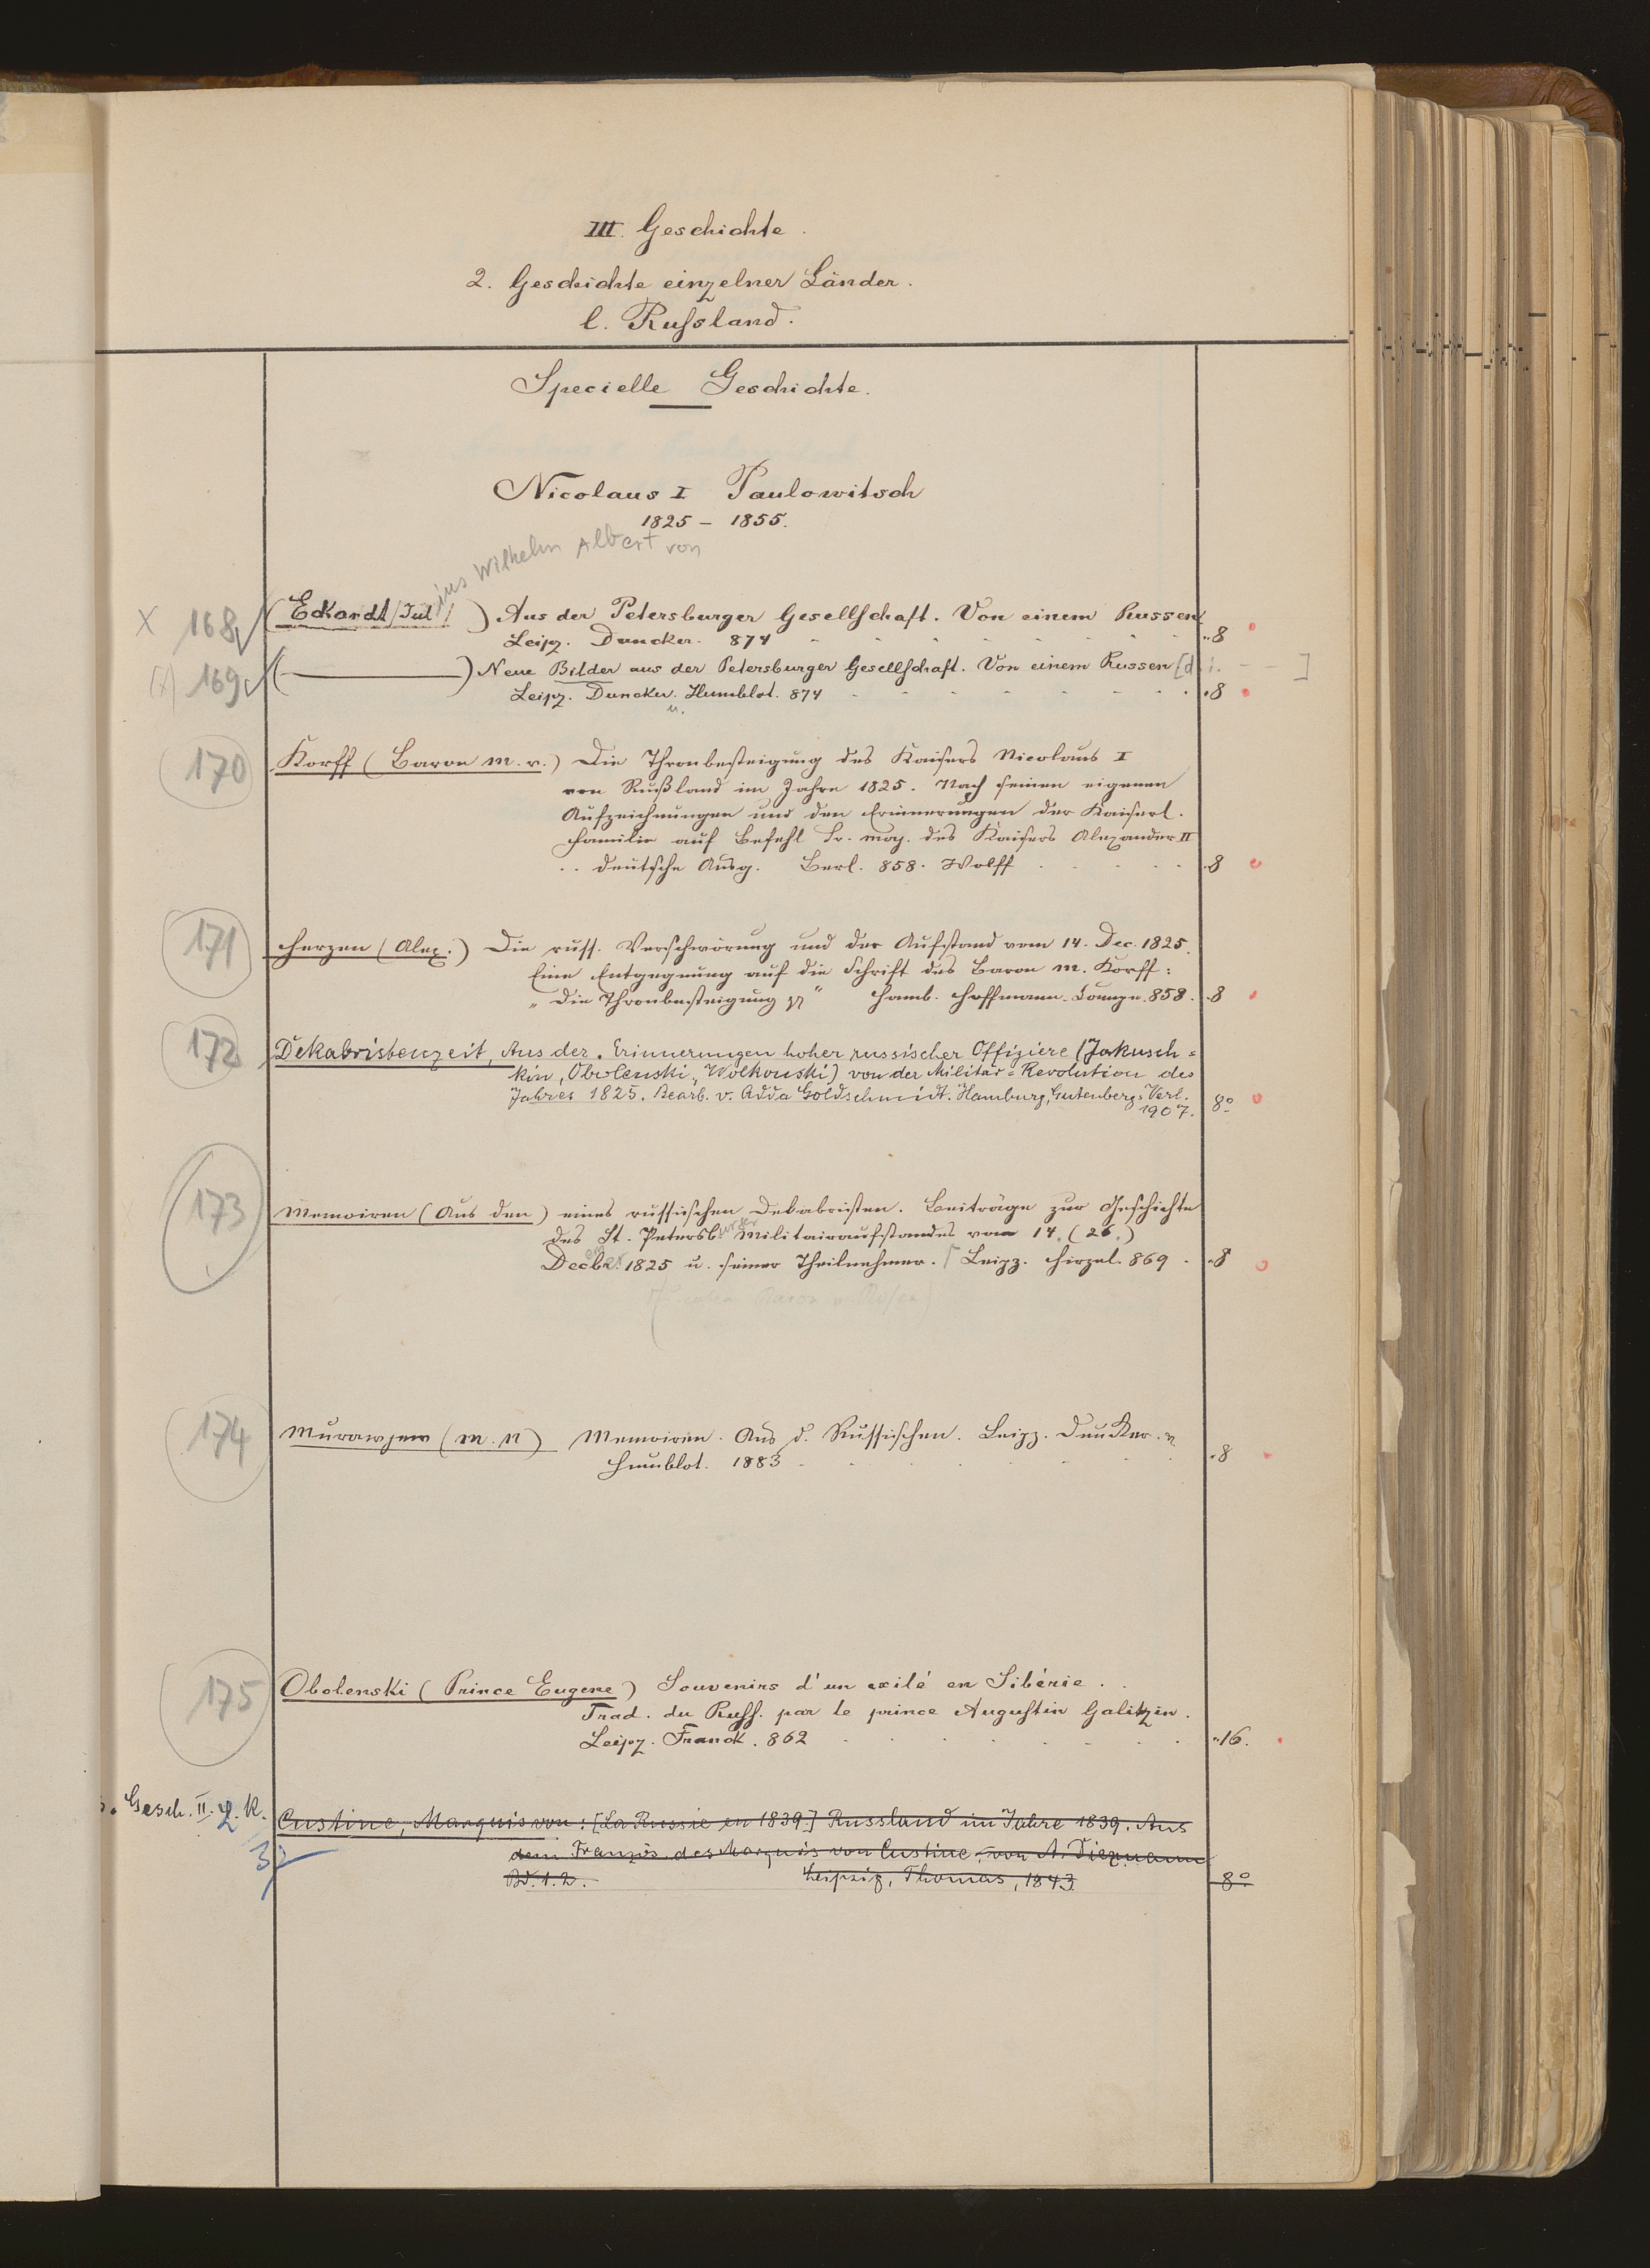 III. Geschichte.
2. Geschichte einzelner Länder.
l. Russland.
Specielle Geschichte.
Nicolaus I Paulowitsch
1825 – 1855.
ius Wilhelm Albert von
X 168. (Eckardt/Jul/) Aus der Petersburger Gesellschaft. Von einem Russen
Leipz. Duncker. 874 . . . . . . . 8
(X) 169. (———) Neue Bilder aus der Petersburger Gesellschaft. Von einem Russen [d. i. — —]
Leipz. Duncker u. Humblot. 874 . . . . . . . 8
170 Korff (Baron M. v.) Die Thronbesteigung des Kaisers Nicolaus I
von Rußland im Jahre 1825. Nach seinen eigenen
Aufzeichnungen und den Erinnerungen der Kaiserl.
Familie auf Befehl Sr. Maj. des Kaisers Alexander II
.. Deutsche Ausg. Berl. 858. Wolff . . . . . 8
171 Herzen (Alex.) Die russ. Verschwörung und der Aufstand vom 14. Dec. 1825.
Eine Entgegnung auf die Schrift des Baron M. Korff:
„Die Thronbesteigung “ Hamb. Hoffmann. Campe. 858. 8
172 Dekabristenzeit, Aus der. Erinnerungen hoher russischer Offiziere (Jakusch=
kin, Obolenski, Wolkonski) von der Militär=Revolution des
Jahres 1825. Bearb. v. Adda Goldschmidt. Hamburg, Gutenberg=Verl.
1907. 8°
173 Memoiren (Aus den) eines russischen Dekabristen. Beiträge zur Geschichte
des St. Petersburger Militairaufstandes vom 14. (26.)
December 1825 u. seiner Theilnehmer. Leipz. Hirzel. 869 . 8
174 Murawjew (M. N) Memoiren. Aus d. Russischen. Leipz. Duncker. u
Humblot. 1883 . . . . . . . 8
175 Obolenski (Prince Eugene) Souvenirs d'un exilé en Sibérie . .
Trad. du Russ. par le prince Augustin Galitzin.
Leipz. Franck. 862 . . . . . . . 16.
s. Gesch. II. 2. k. Custine, Marquis von: [La Russie en 1839.] Russland im Jahre 1839. Aus
32 dem Französ. des Marquis von Custine von A. Diezmann
Bd. 1. 2. Leipzig, Thomas, 1843. 8°